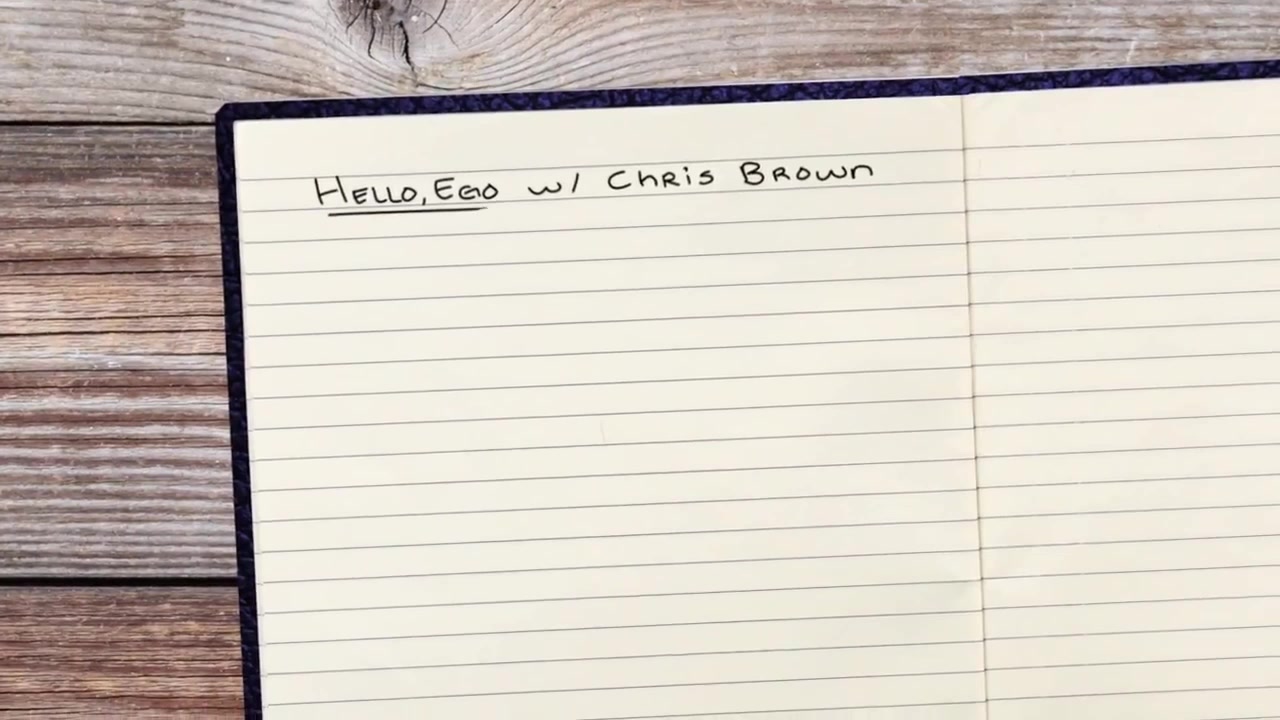 Hello, Ego w/ Chris Brown